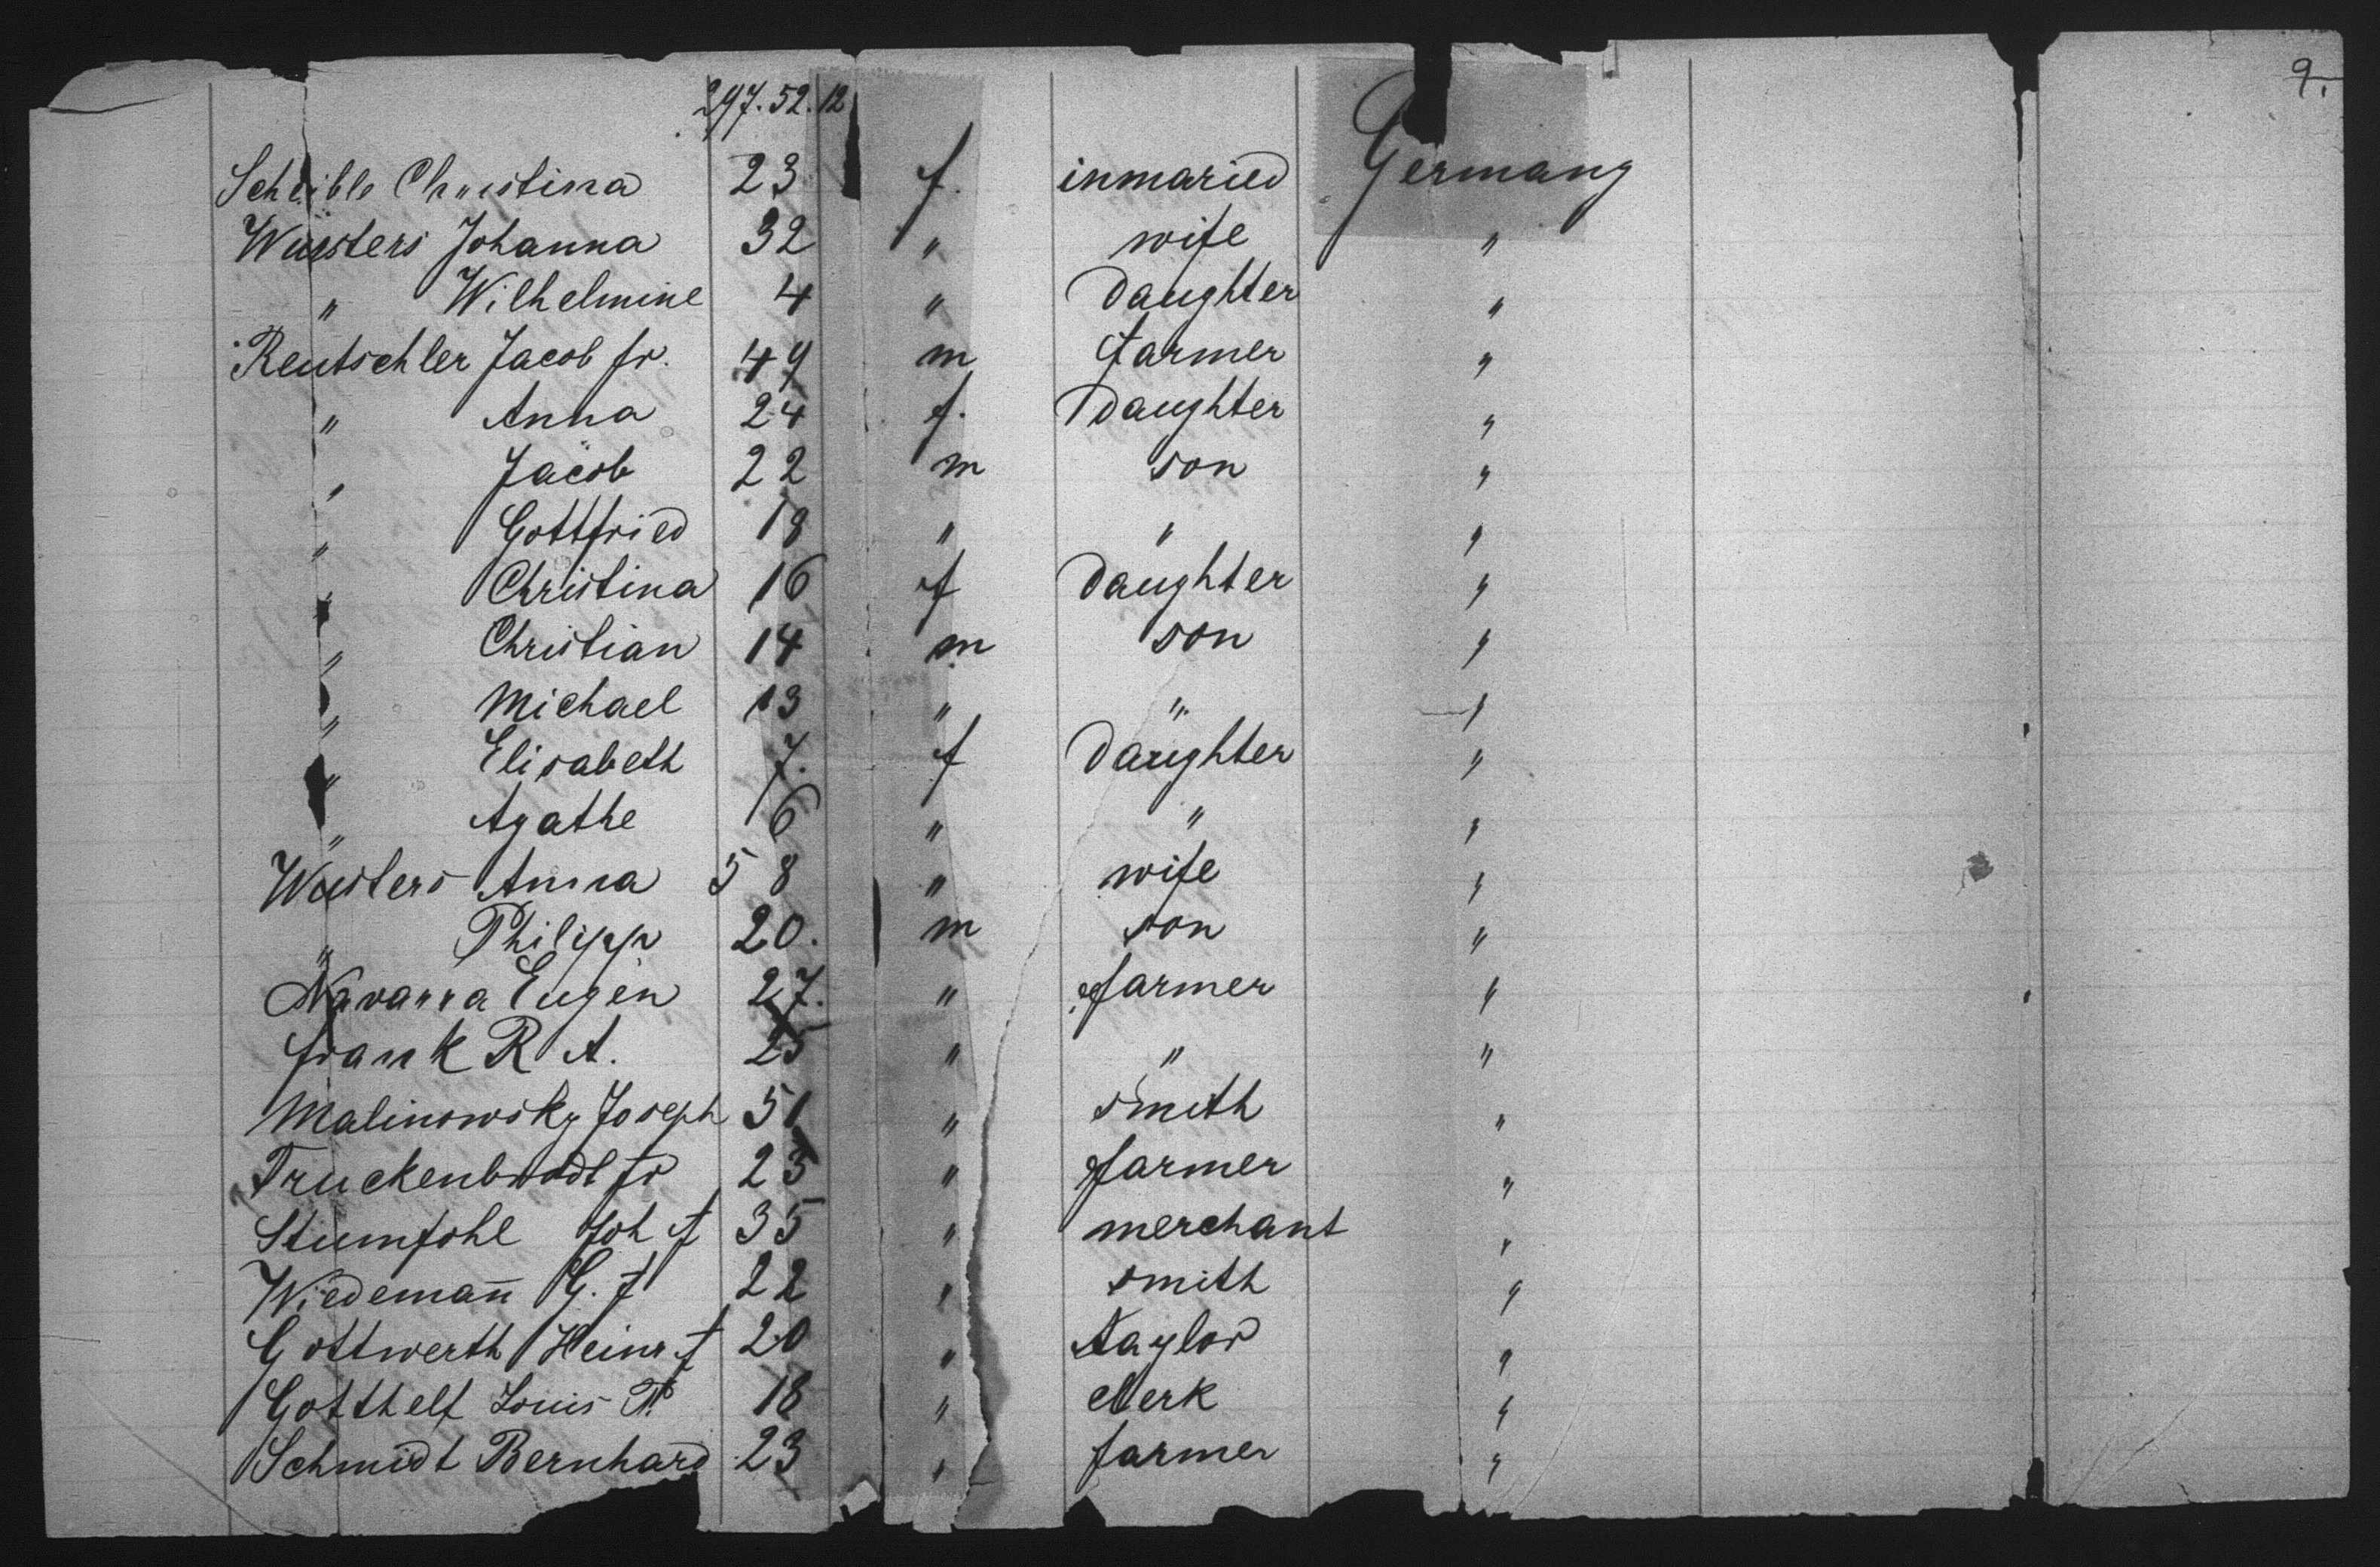 9.
297.52.12
Scheible Christina 23 f. inmaried Germany
Wüsters Johanna 32 " wife "
" Wilhelmine 4 " Daughter "
Reutschler Jacob fr. 49 m farmer "
" Anna 24 f. Daughter "
" Jacob 22 m son "
" Gottfried 18 " " "
" Christina 16 f Daughter "
" Christian 14 m son "
" Michael 13 " " "
" Elisabeth 7. f Daughter "
" Agathe 6 " " "
Wüsters Anna 58 " wife "
" Philipp 20. m son "
Navarra Eugen 27. " farmer "
Frank R A. 25 " " "
Malinowsky Joseph 51 " smith "
Truckenbrodt fr 23 " farmer "
Stumfohl Joh f 35 " merchant "
Wiedemañ G. f 22 " smith "
Gottwerth Heinr f 20 " taylor "
Gotthelf Louis Th 18 " clerk "
Schmidt Bernhard 23 " farmer "